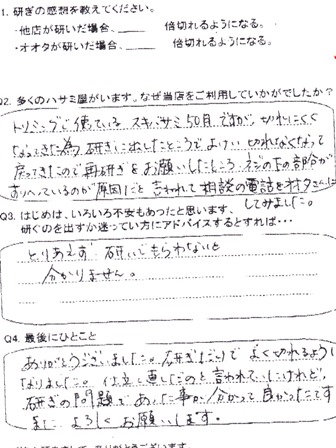 1. 研ぎの感想を教えてください。
・他店が研いだ場合、____ 倍切れるようになる。
・オオタが研いだ場合、____ 倍切れるようになる。
Q2. 多くのハサミ屋がいます。なぜ当店をご利用していかがでしたか?
トリミングで使っている スキバサミ50目ですが、切れにくく
なってきた為 研ぎに出したところで よけい切れなくなって
戻ってきたので再研ぎをお願いしたところ ネジの下の部分が
すりへっているのが原因だと言われて相談の電話をオオタさんに
してみました。
Q3. はじめは、いろいろ不安もあったと思います、
研ぐのを出すか迷ってい方にアドバイスするとすれば・・・
とりあえず 研いでもらわないと
分かりません。
Q4. 最後にひとこと
ありがとうございました。研ぎだけで よく切れるように
なりました。 直したのと言われていたけれど、
研ぎの問題であった事が分かって良かったです
また よろしくお願いします。